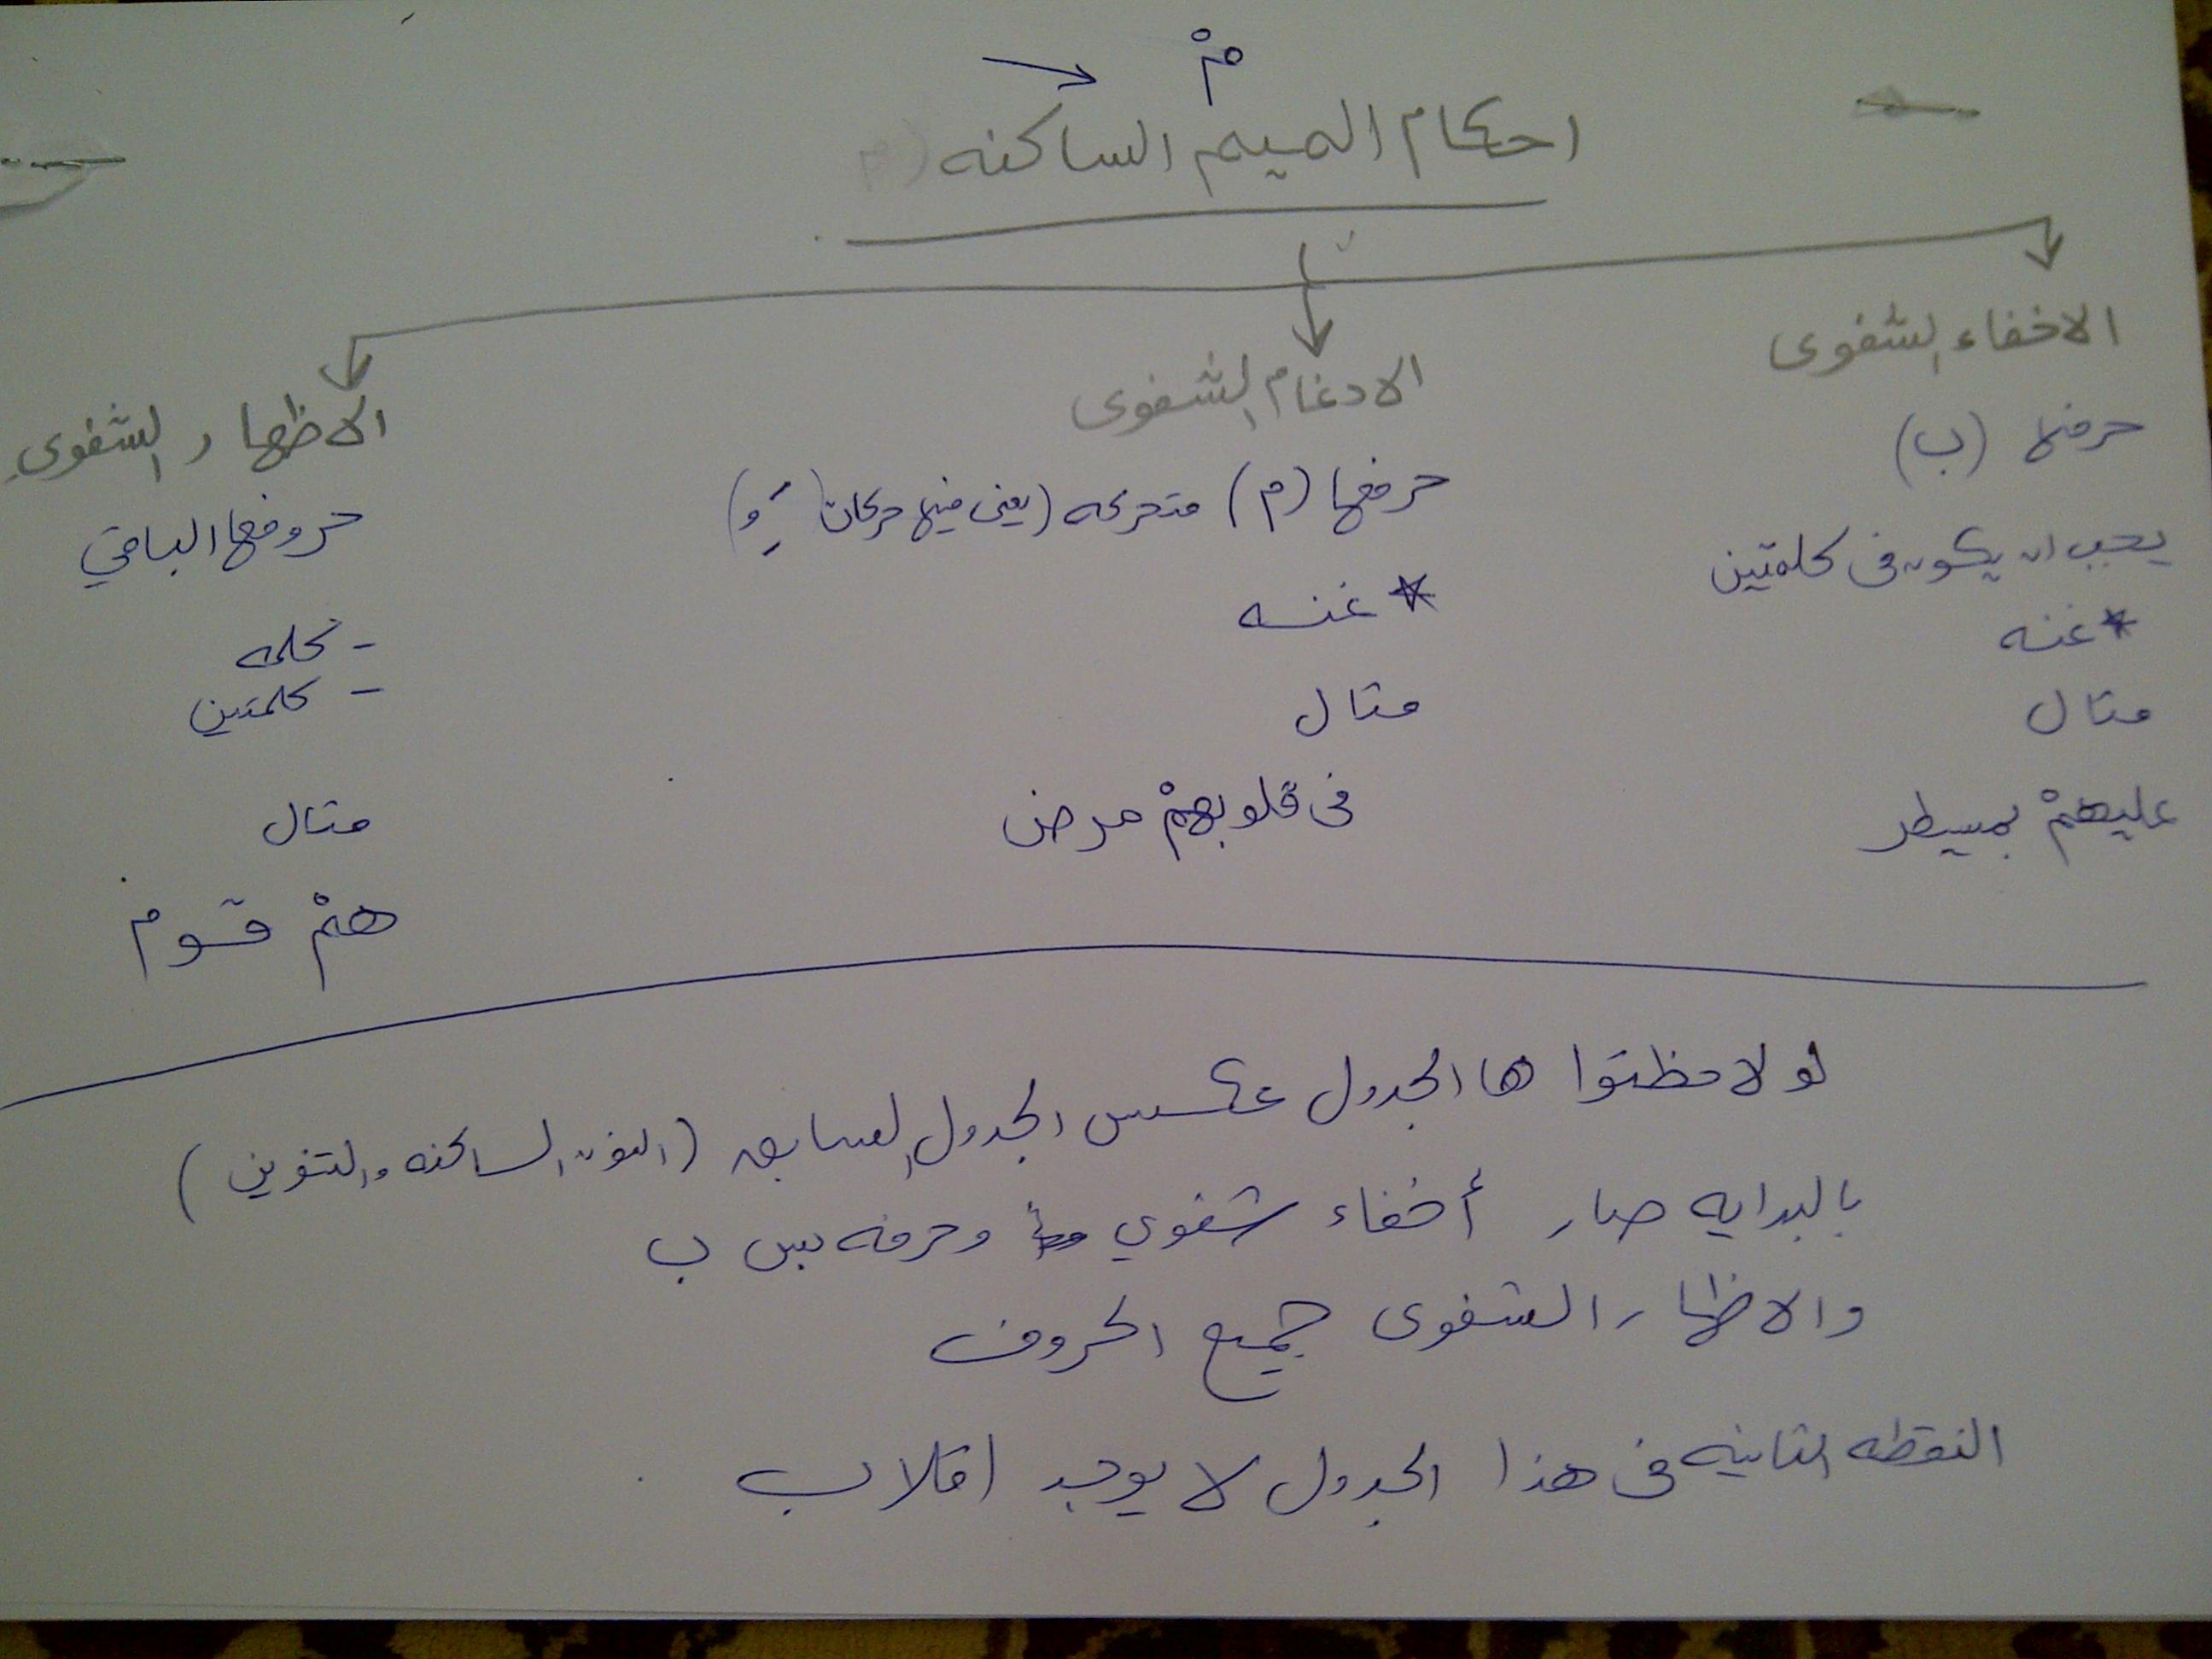 مْ
احكام الميم الساكنه
الاخفاء الشفوى
حرفها (ب)
يجب ان يكون فى كلمتين
* غنه
مثال
عليهمْ بمسيطر
الادغام الشفوى
حرفها (م) متحركه (يعنى فيها حركات َ ِ ُ)
* غنه
مثال
فى قلوبهمْ مرض
الاظهار الشفوي
حروفها الباقي
- كلمه
- كلمتين
مثال
همْ قوم
لو لاحظتوا ها الجدول عكس الجدول السابق (النون الساكنه والتنوين)
بالبدايه صار أخفاء شفوي وحرفه بس ب
والاظهار الشفوى جميع الحروف
النقطه الثانيه فى هذا الجدول لا يوجد اقلاب